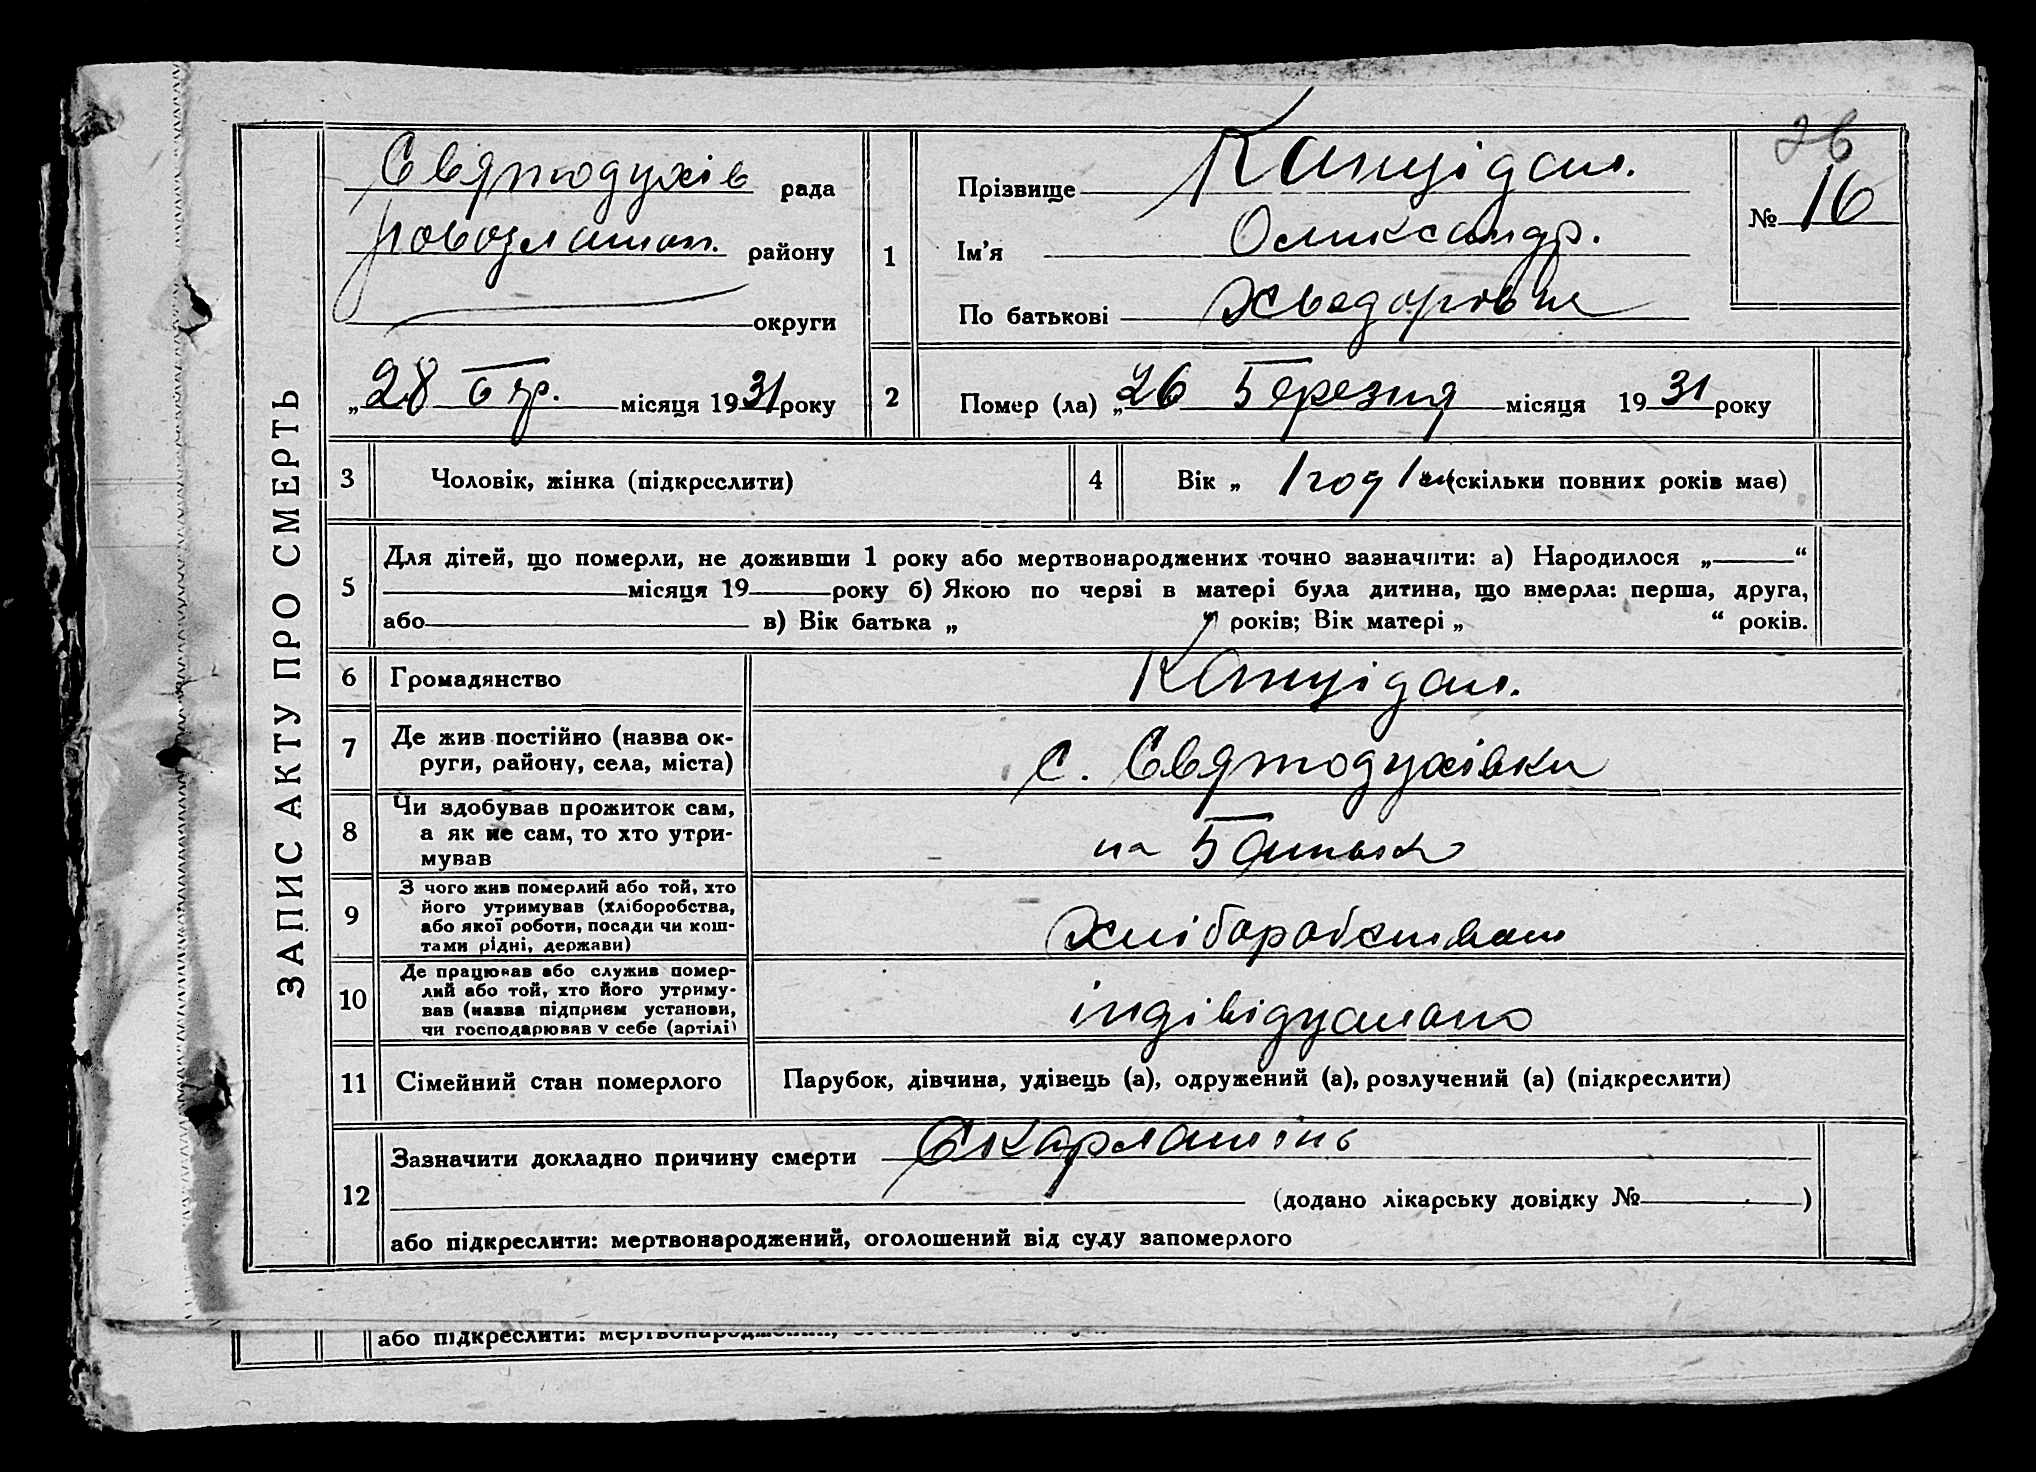 ЗАПИС АКТУ ПРО СМЕРТЬ
Святодухів рада
району
округи
„28 бер. місяця 1931 року
1
Прізвище
Ім'я Олександр.
По батькові Хведорович
26
№ 16
2
Помер (ла) „26 Березня місяця 1931 року
3
Чоловік, жінка (підкреслити)
4
Вік „ 1 год 1 м (скільки повних років має)
5
Для дітей, що померли, не доживши 1 року або мертвонароджених точно зазначити: а) Народилося „ “
місяця 19 року б) Якою по черзі в матері була дитина, що вмерла: перша, друга,
або в) Вік батька „ “ років; Вік матері „ “ років.
6
Громадянство
7
Де жив постійно (назва ок-
руги, району, села, міста)
с. Святодухівки
8
Чи здобував прожиток сам,
а як не сам, то хто утри-
мував
на батьків
9
З чого жив померлий або той, хто
його утримував (хліборобства,
або якої роботи, посади чи кош-
тами рідні, держави)
хліборобством
10
Де працював або служив помер-
лий або той, хто його утриму-
вав (назва підприєм установи,
чи господарював у себе (артілі)
індівідуально
11
Сімейний стан померлого
Парубок, дівчина, удівець (а), одружений (а), розлучений (а) (підкреслити)
12
Зазначити докладно причину смерти Скарлатінь
(додано лікарську довідку № )
або підкреслити: мертвонароджений, оголошений від суду запомерлого
або підкреслити: мертвонароджений,